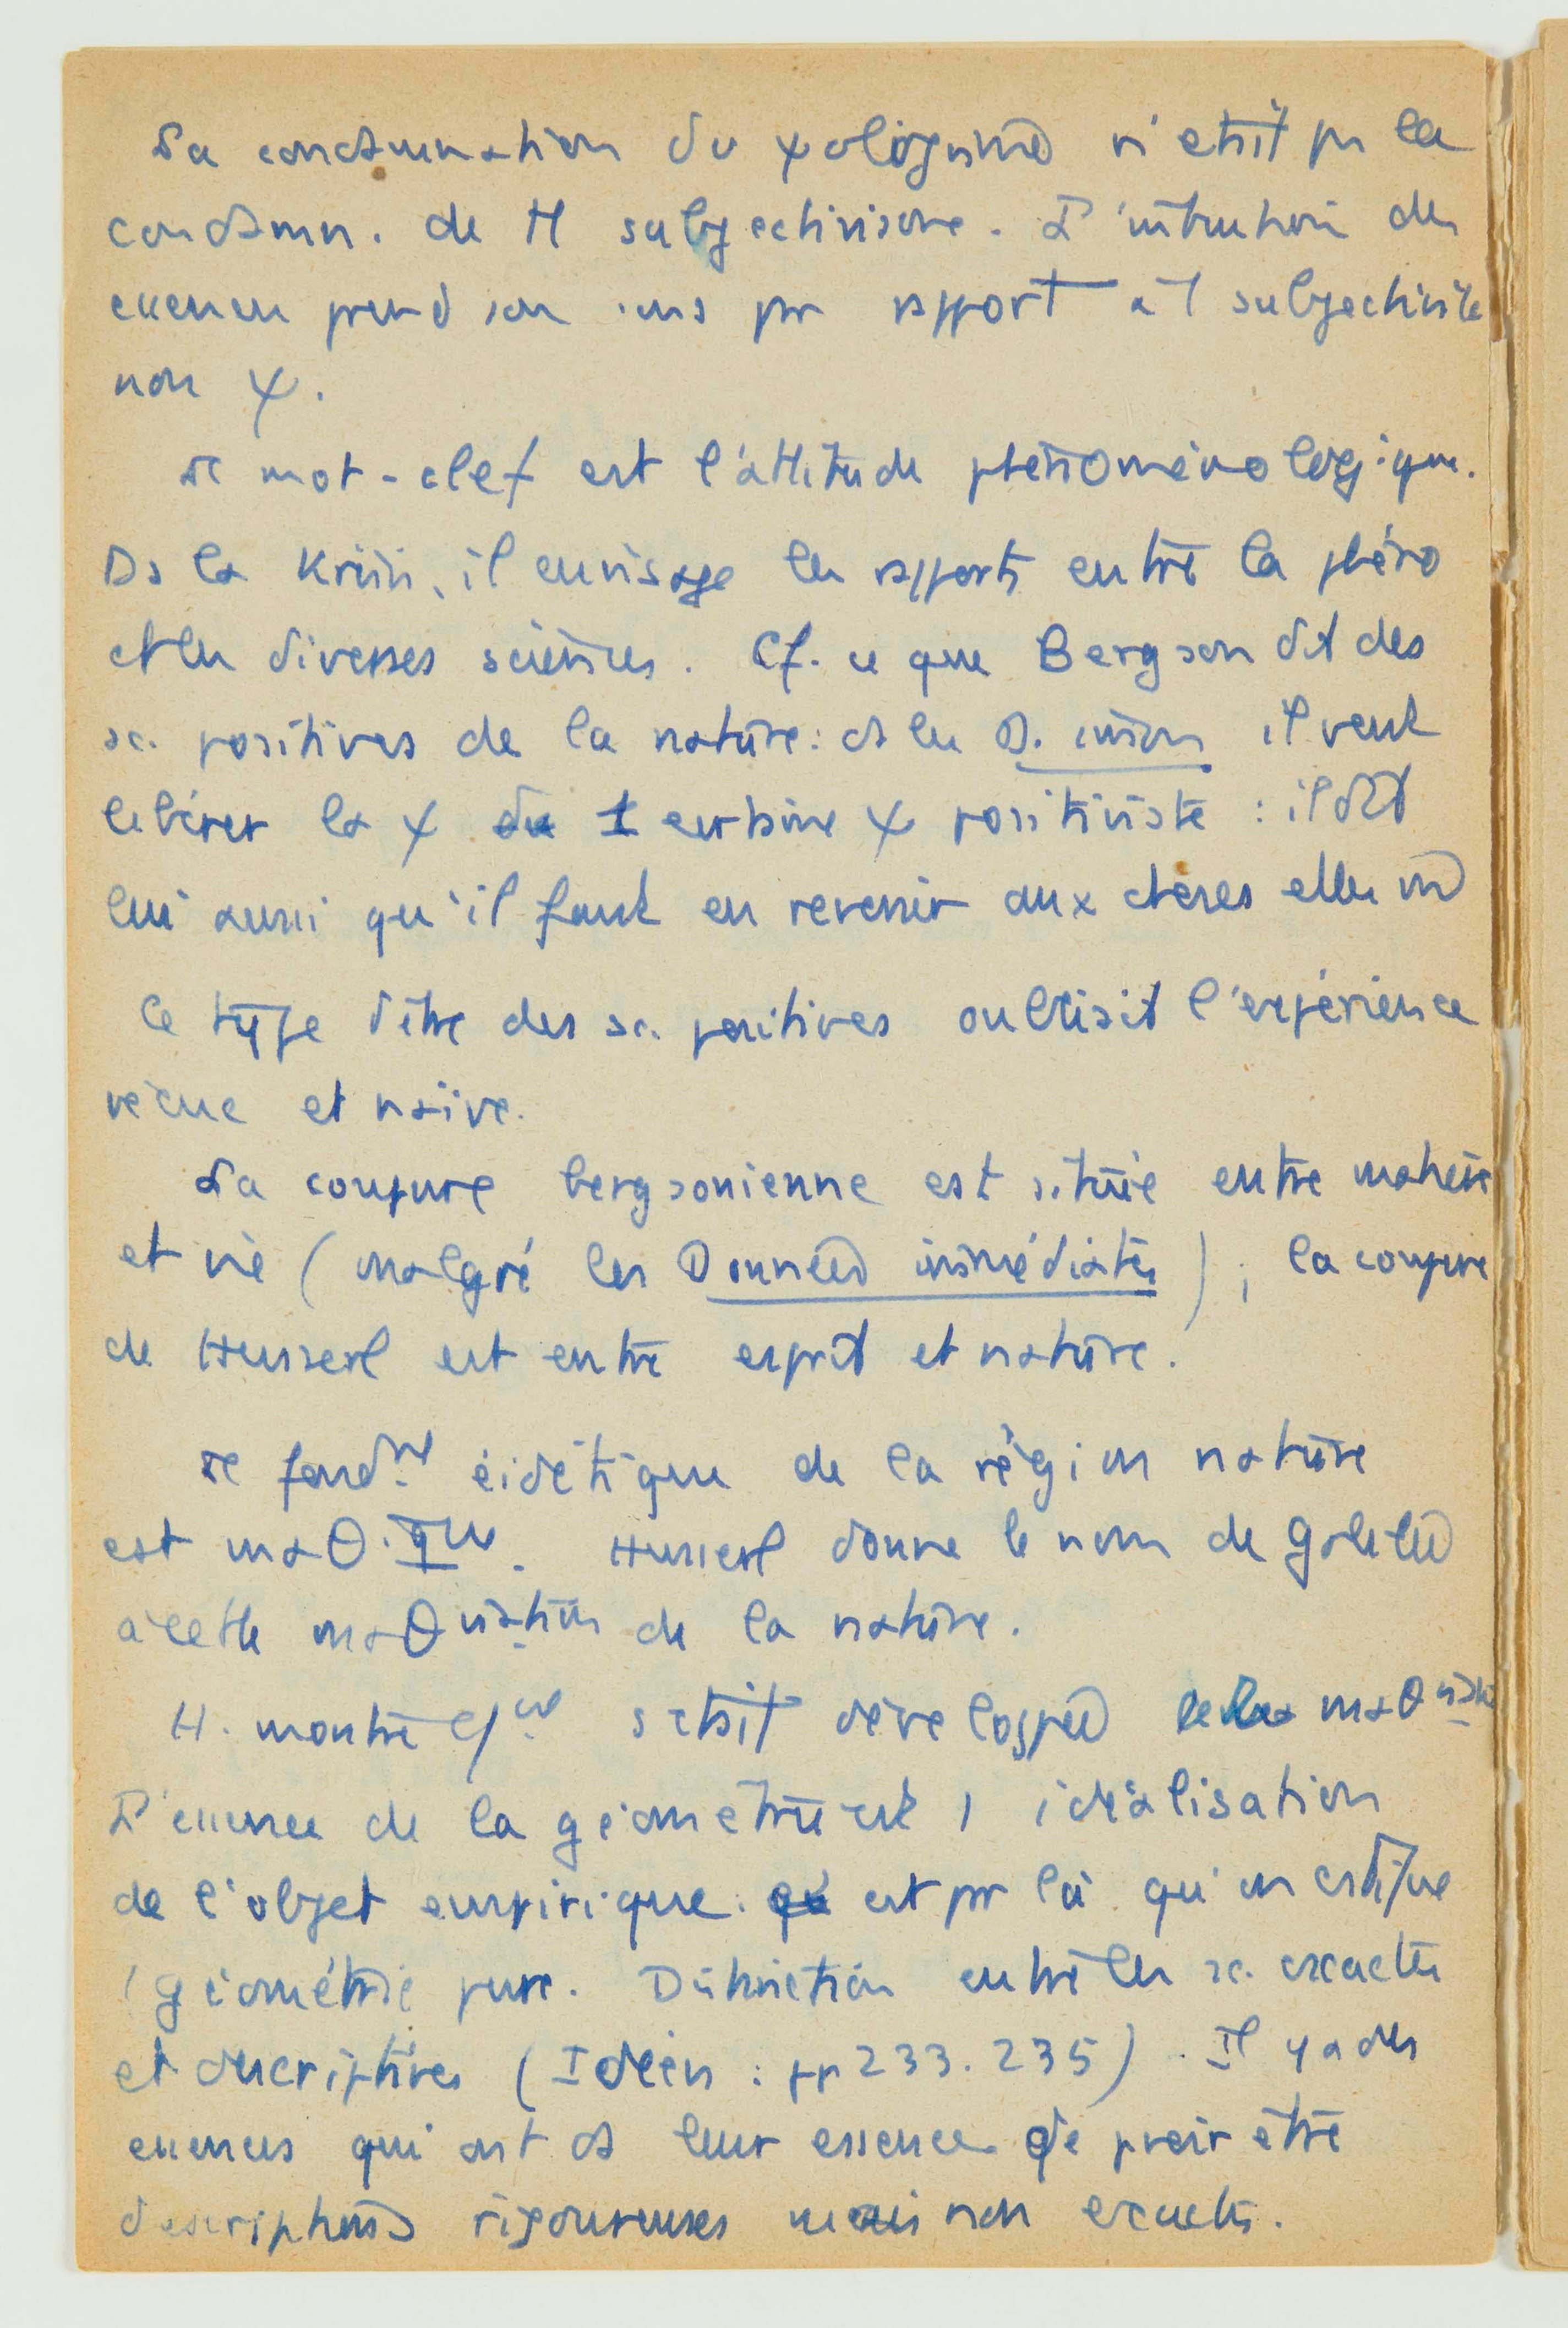 La condamnation du ψologisme n'était pas la
condamn. de tt subjectivisme. L'intuition des
essences prend son sens par rapport à 1 subjectivité
non ψ.
Le mot-clef est l'attitude phénoménologique.
Ds la Krisis, il envisage les rapports entre la phéno
et les diverses sciences. Cf. ce que Bergson dit des
sc. positives de la nature : ds les D. imm. il veut
libérer la ψ d' 1 certaine ψ positiviste : il dit
lui aussi qu'il faut en revenir aux choses elles m̂
Ce type d'être des sc. positives oubliait l'expérience
vécue et naïve.
La coupure bergsonienne est située entre matière
et vie (malgré les Données immédiates) ; la coupure
de Husserl est entre esprit et nature.
Le fondmt eidétique de la région nature
est maθ.que. Husserl donne le nom de Galilée
à cette maθisation de la nature.
H. montre cmt s'était développée la maθis.
L'essence de la géométrie est 1 idéalisation
de l'objet empirique. est par là qu'on
1 géométrie pure. Distinction entre les sc. exactes
et descriptives (Ideen : pp 233.235). Il y a des
essences qui ont ds leur essence de pvoir être
descriptions rigoureuses mais non exactes.